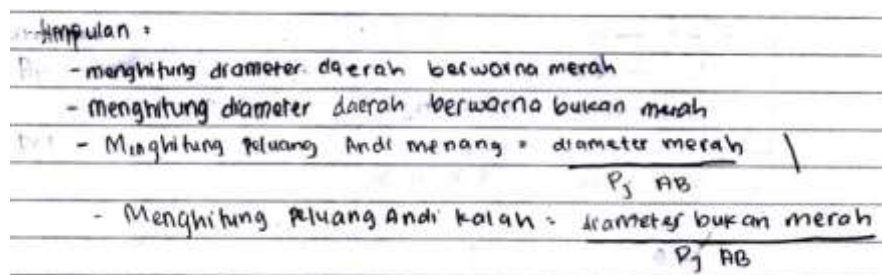 simpulan :
- menghitung diameter daerah berwarna merah
- menghitung diameter daerah berwarna bukan merah
- Menghitung peluang Andi menang = diameter merah
Pj AB
- Menghitung peluang Andi kalah = diameter bukan merah
Pj AB